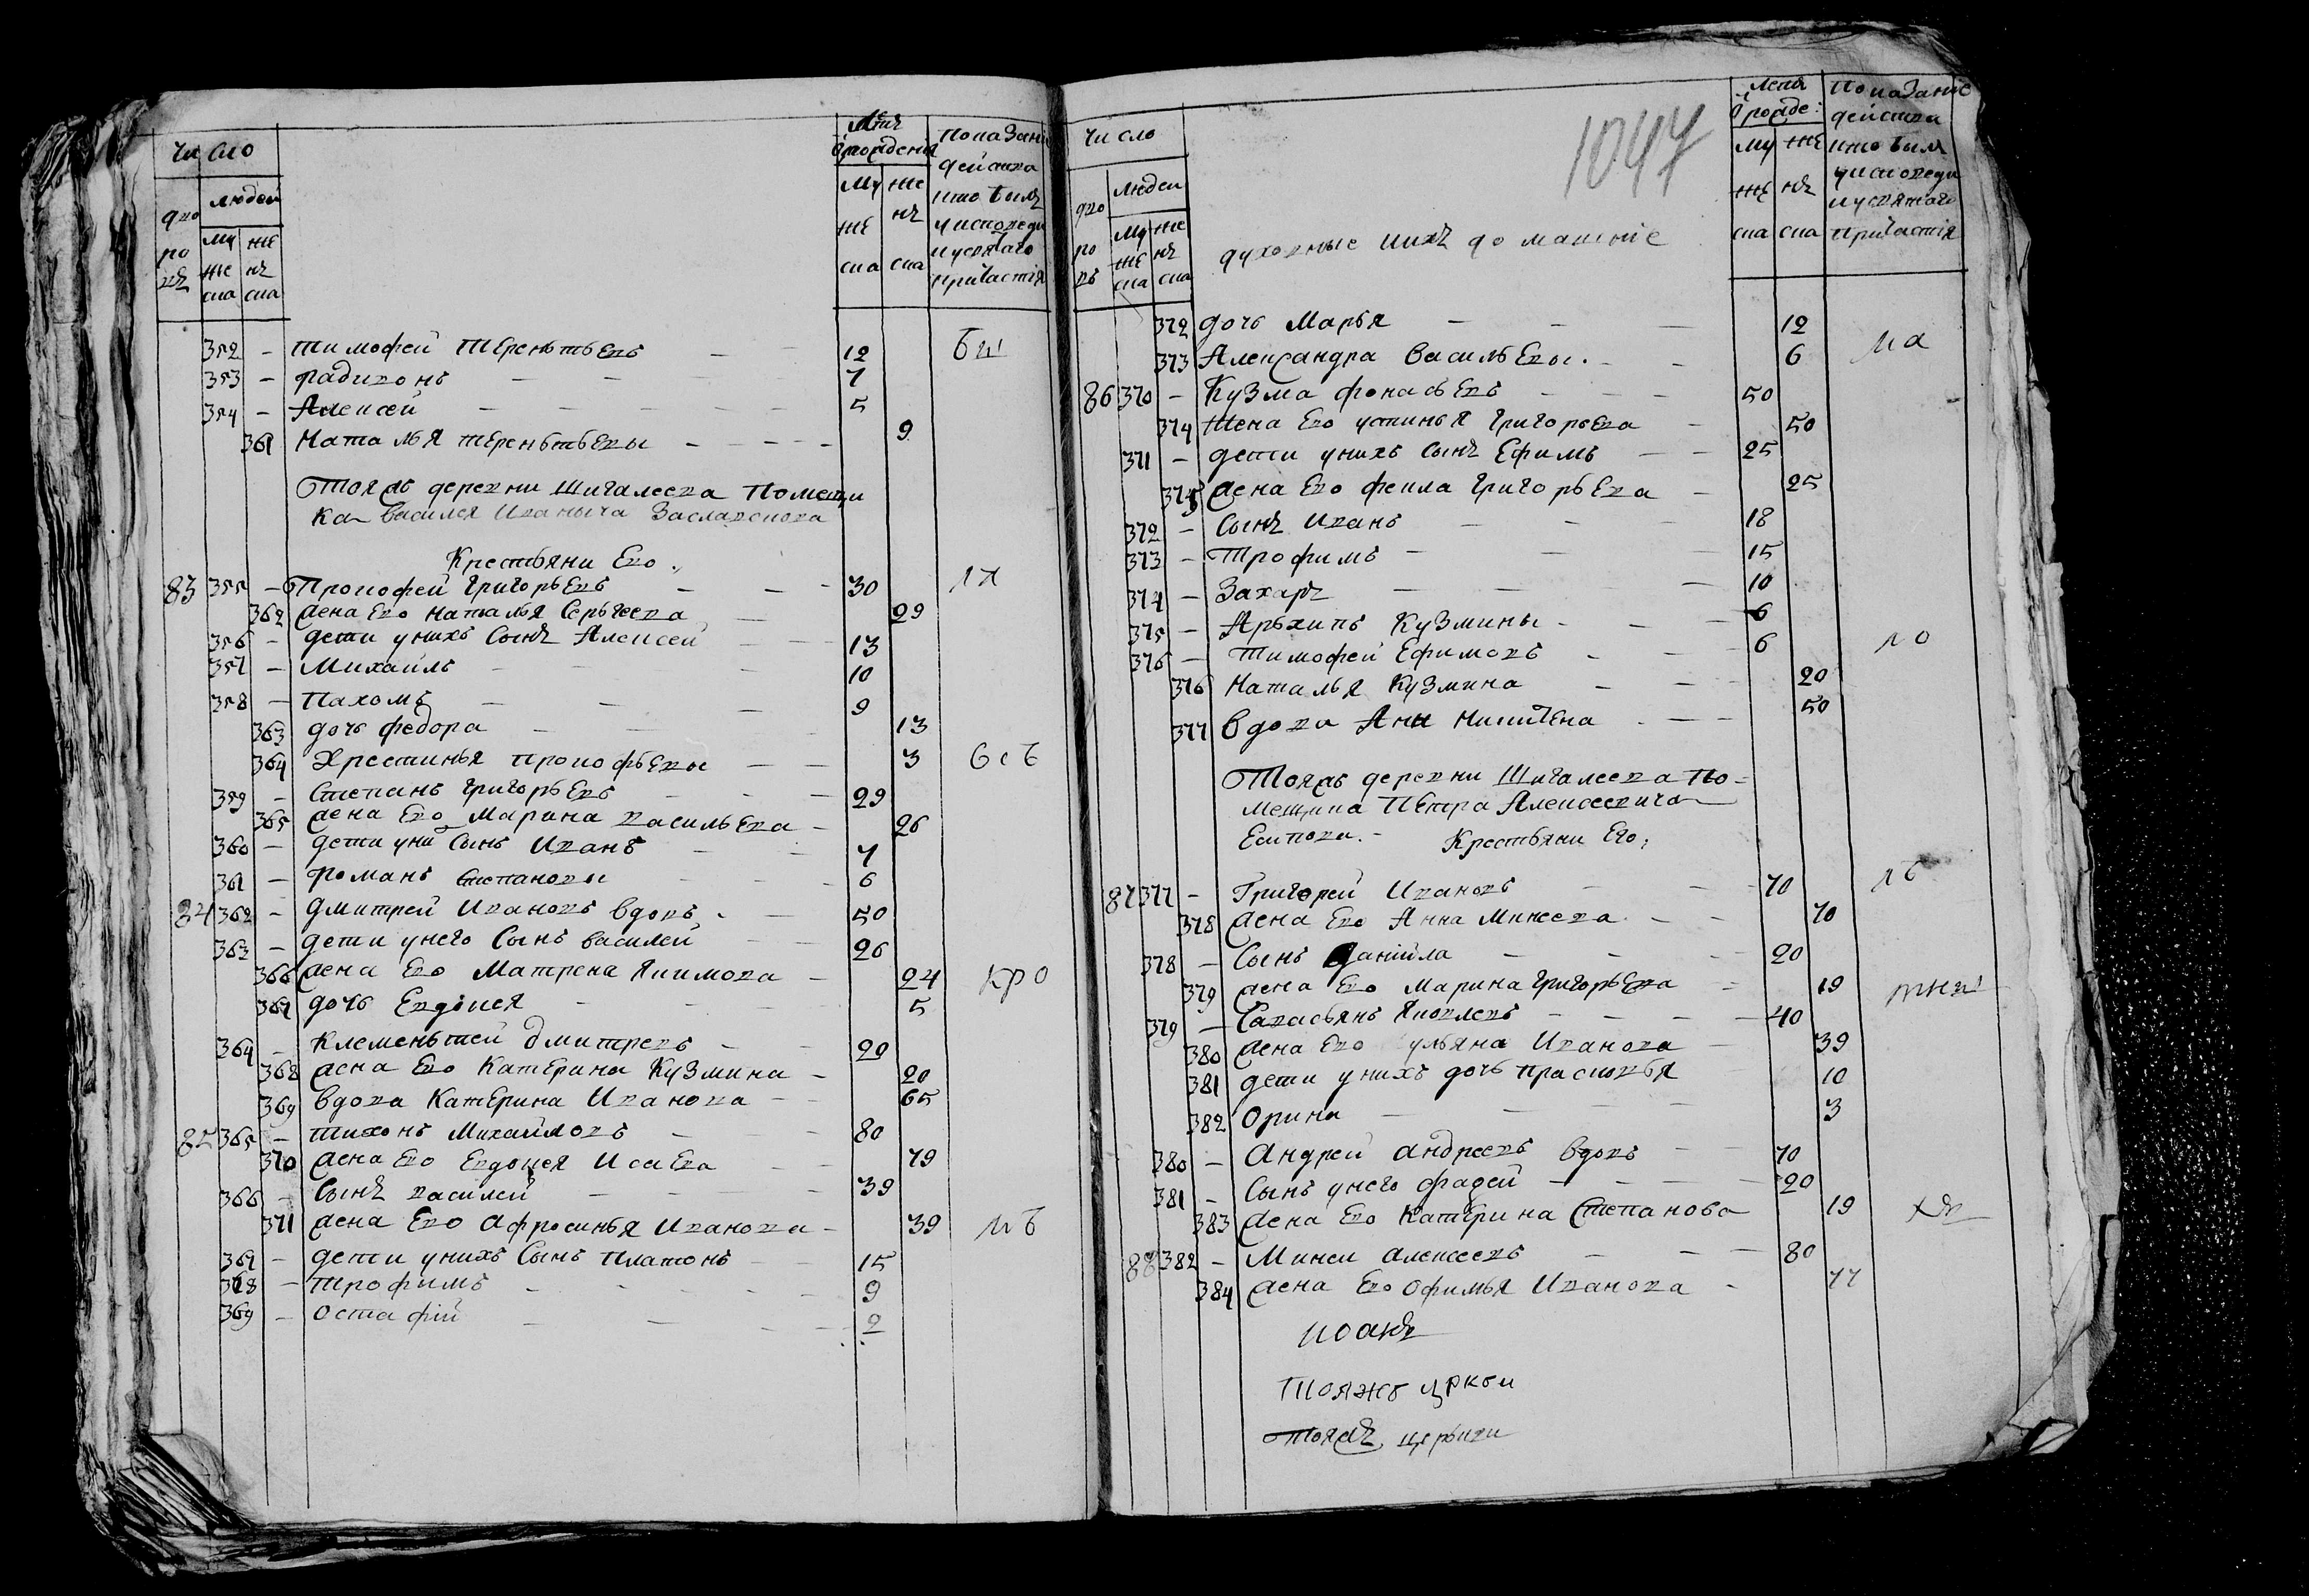 Число
людей
дво
ровъ
му
же
ска
же
нъ
ска
Лета
ѿ рождения
му
же
ска
же
нъ
ска
показани
действа
кто былъ
у исповеди
и у святаго
причастия
352 – тимофей терентьевъ – – 12
353 – радивонъ – – – 7
354 – Алексей – – – 5
361 Наталья терентьевы – – – 9
Тояжъ деревни Шигалеева помещи
ка василея Иваныча Заславскова
Крестьяни Ево
83 355 – Прокофей Григорьевъ – – 30
362 жена Ево наталья Сергеева – 29
356 – дети у нихъ Сынъ Алексей – – 13
357 – Михаилъ – – 10
358 – Пахомъ – – – 9
363 дочь федора – – – 13
364 Хрестинья прокофьевы – – 3
359 – Степанъ Григорьевъ – – – 29
365 жена Ево Марина васильева – 26
360 – дети у ни Сынъ Иванъ – – 7
361 – Романъ степановы – – 6
84 362 – Дмитрей Ивановъ вдовъ – – 50
363 – дети у него Сынъ василей – – 26
366 жена Ево Матрена Якимова – 24
367 дочь Евдокея – – – 5
364 – Клементей дмитревъ – – 20
368 жена Ево Катерина Кузмина – 20
369 вдова Катерина Иванова – – 65
85 365 – тихонъ Михайловъ – – 80
370 жена Ево Евдокея Исаева – – 79
366 – Сынъ василей – – – 39
371 жена Ево Афросинья Иванова – 39
367 – дети у нихъ Сынъ Платонъ – – 15
368 – трофимъ – – – – 9
369 – остафий – – – – 2
1047
Число
дво
ро
въ
людей
му
же
ска
же
нъ
ска
духовные и ихъ домашние
Лета
ѿ рожде:
му
же
ска
же
нъ
ска
Показание
действа
кто былъ
у исповеди
и у святаго
причастия
372 дочь Марья – – – 12
373 Александра васильевы. – – 6
86 370 – Кузма фонасьевъ – – – 50
374 Жена Ево устинья Григорьева – 50
371 – дети у нихъ Сынъ Ефимъ – – 25
375 жена Ево фекла Григорьева – 25
372 – Сынъ Иванъ – – – 18
373 – Трофимъ – – – 15
374 – Захаръ – – – 10
375 – Архипъ Кузмины – – – 6
376 – тимофей Ефимовъ – – – 6
376 Наталья Кузмина – – – 20
377 вдова Анн Никитена – – – 50
Тояжъ деревни Шигалеева по-
мещика Петра Алексеевича
Есипова. – Крестьяни Его,
87 377 – Григорей Ивановъ – – – 70
378 жена Ево Анна Микеева – – 70
378 – Сынъ Данийла – – – 20
379 жена Ево Марина Григорьева – 19
379 – Савасьянъ Яковлевъ – – – 40
380 жена Ево ульяна Иванова – 39
381 дети у нихъ дочь прасковья 10
382 Орина – – – – 3
380 – Андрей андреевъ вдовъ – – 70
381 – Сынъ у него фадей – – – 20
383 жена Ево Катерина Степанова 19
88 382 – Микеи алексеевъ – – – 80
384 жена Ево Офимья Иванова – 77
иоанъ
тояжъ цркви
тояжъ церькви